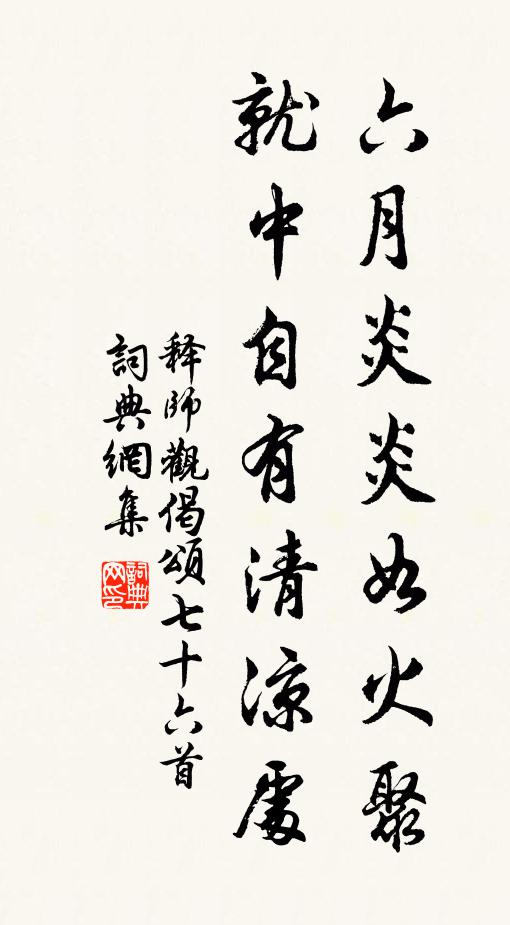 六月炎炎如火聚
就中自有清凉處
释師觀偈頌七十六首
詞典網集
詞典网印